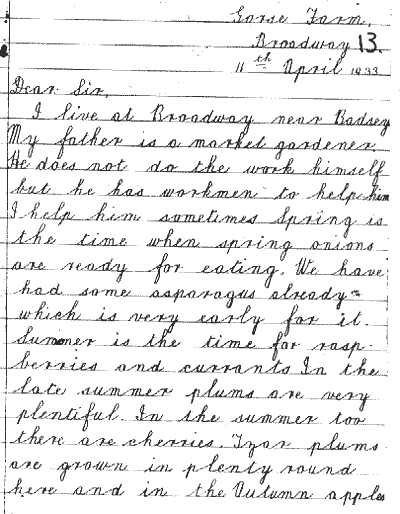 Gorse Farm,
Broadway 13.
11th April 1933
Dear Sir,
I live at Broadway near Badsey
My father is a market gardener.
He does not do the work himself
but he has workmen to help him
I help him sometimes Spring is
the time when spring onions
are ready for eating. We have
had some asparagus already
which is very early for it.
Summer is the time for rasp-
berries and currants In the
late summer plums are very
plentiful. In the summer too
there are cherries. Czar plums
are grown in plenty round
here and in the Autumn apples